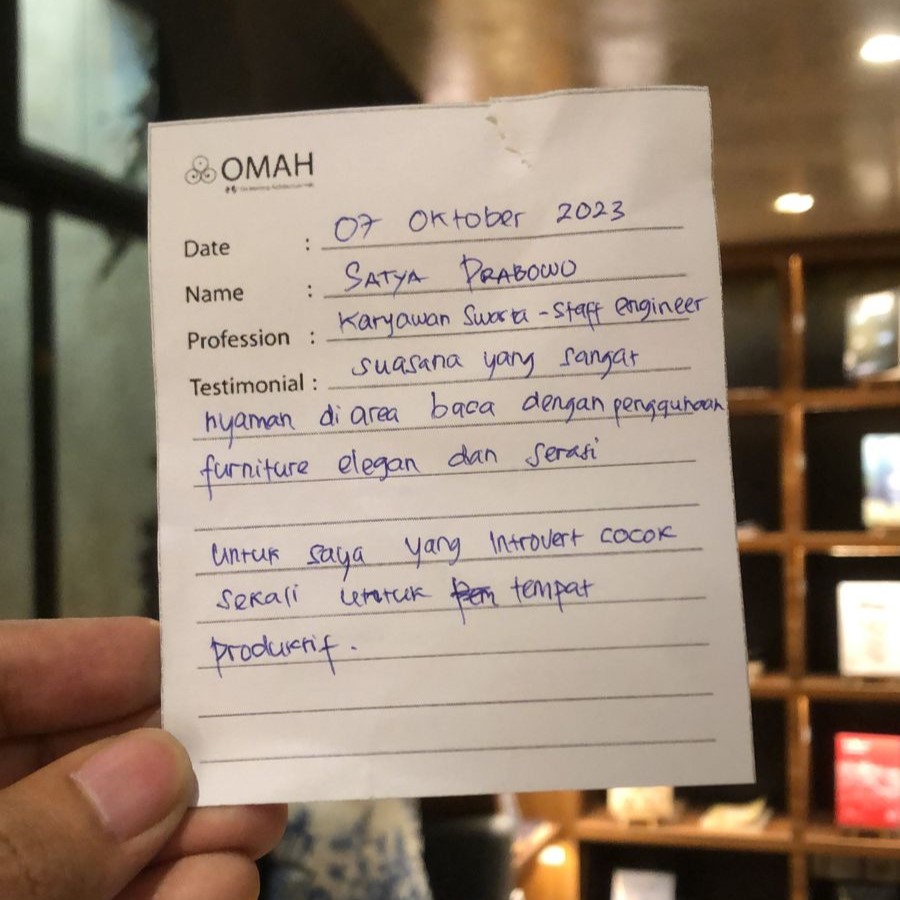 OMAH
Date : 07 Oktober 2023
Name : SATYA PRABOWO
Profession : Karyawan Swasta - Staff engineer
Testimonial : suasana yang sangat
nyaman di area baca dengan penggunaan
furniture elegan dan serasi
untuk saya yang Introvert cocok
sekali untuk tempat
produktif.